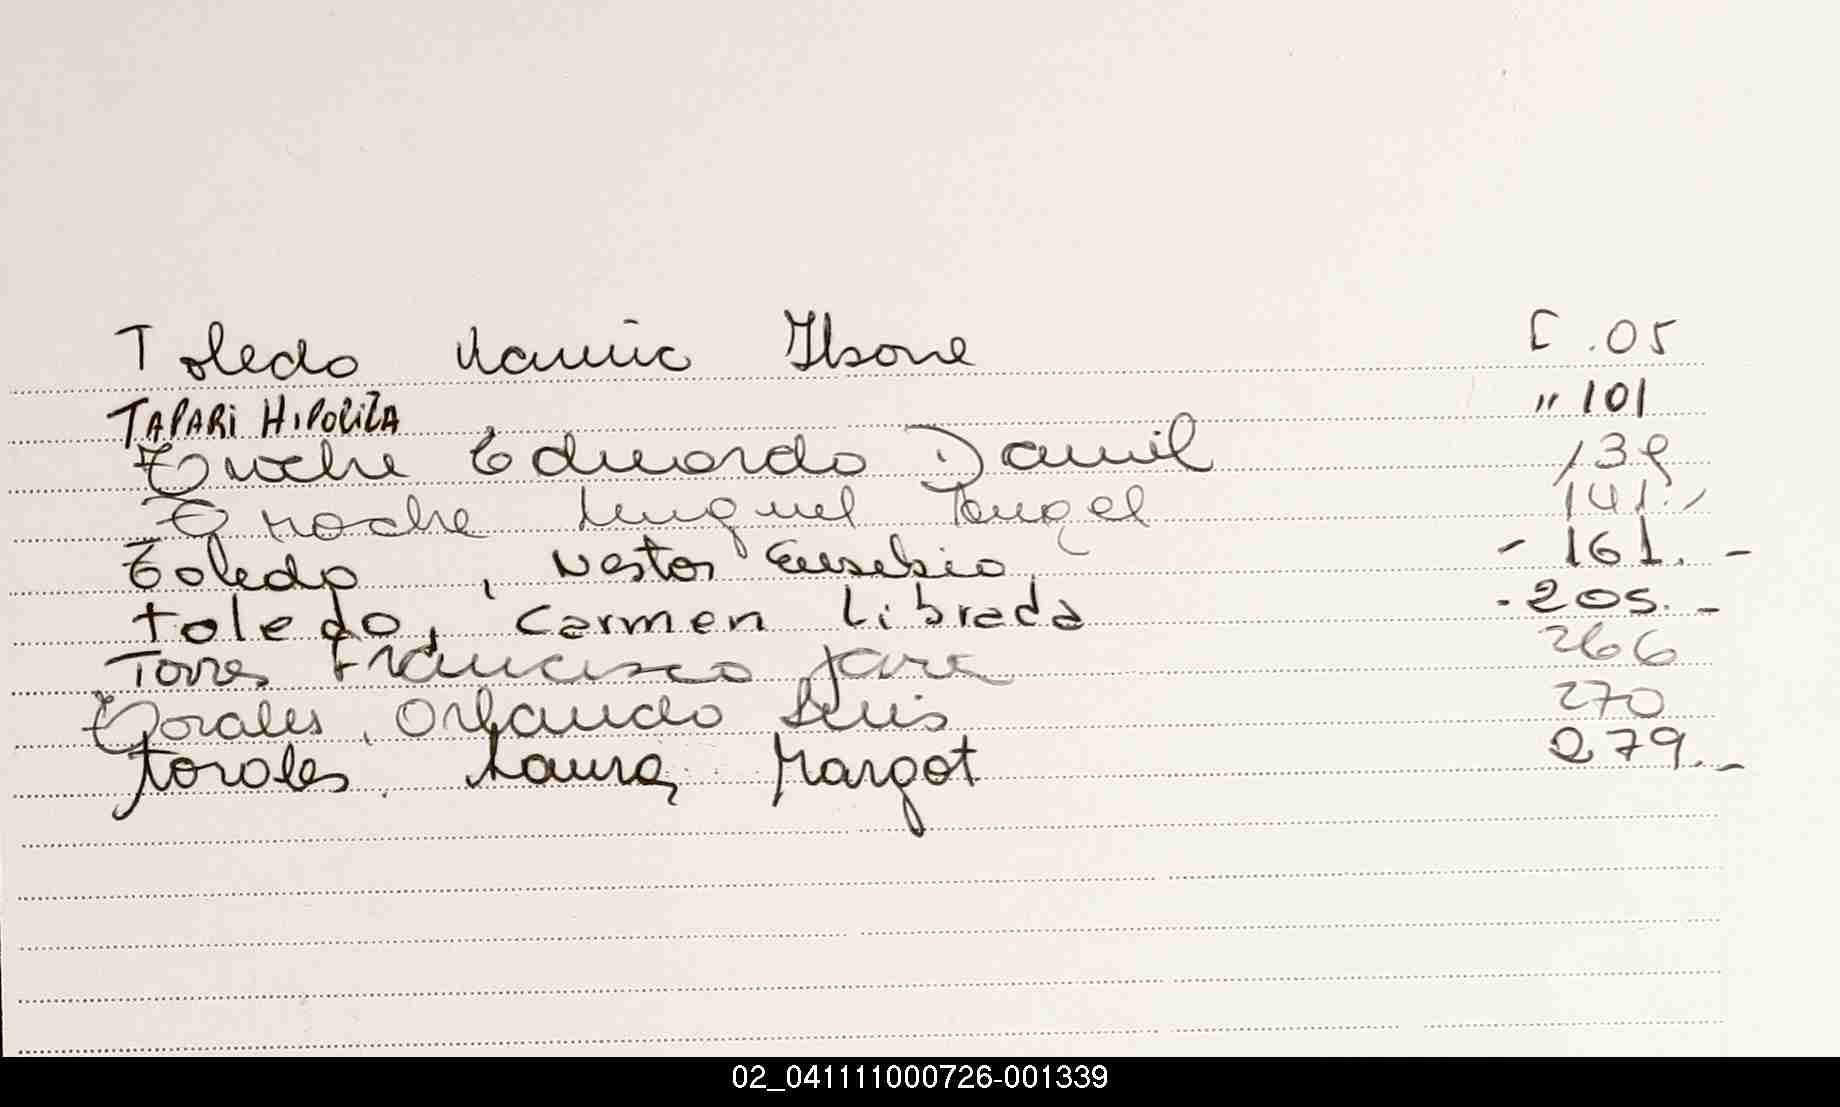 Toledo Ilsone [ .05
TAPARI HIPOLIZA " 101
Eduardo Daniel 139
Miguel Angel 141.-
Toledo, Nestor Eusebio - 161.-
toledo, Carmen Librada - 205.-
Torres Francisco Jose 266
Torales, Orlando Luis 270
toroles, Laura Margot 279.-
02_041111000726-001339